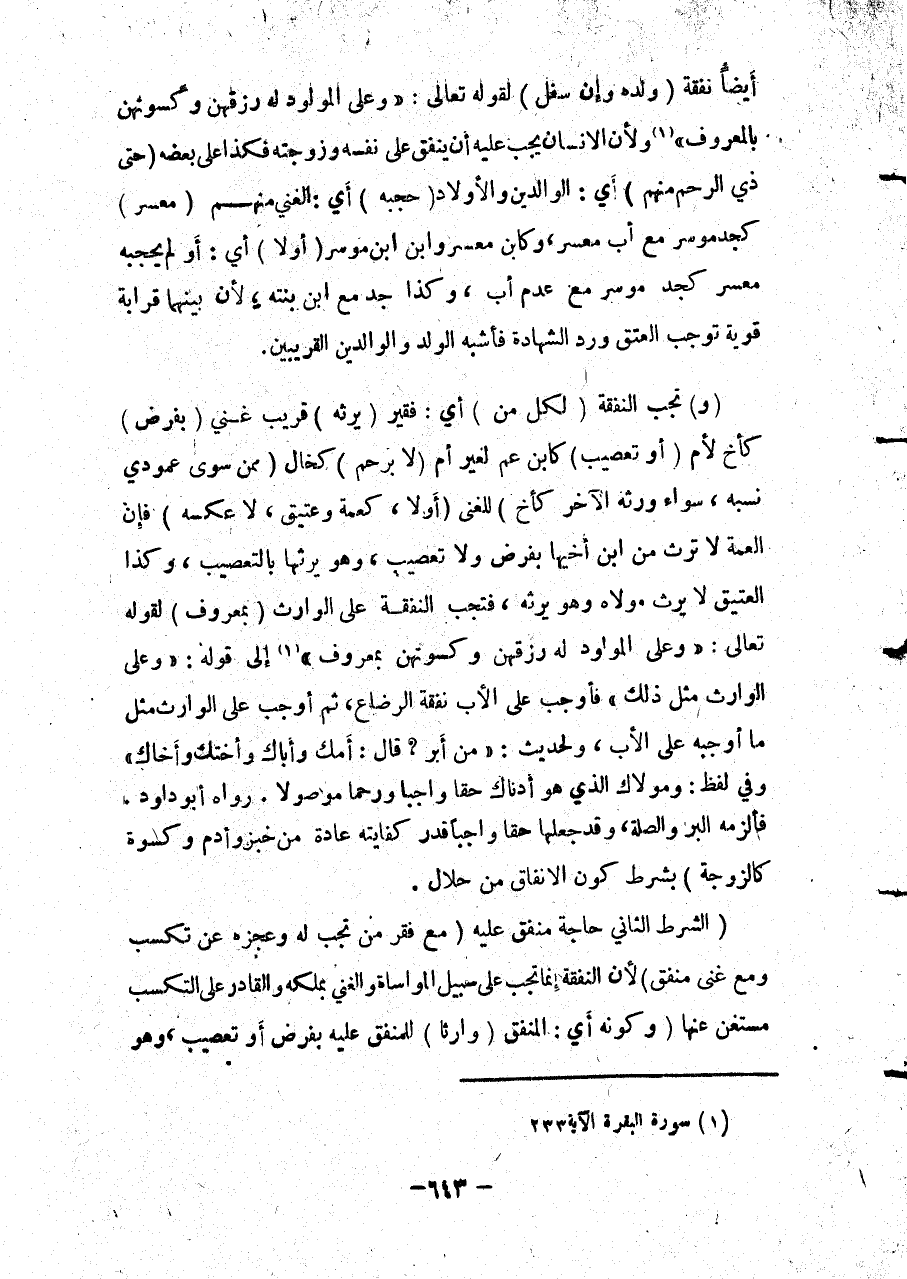 أيضاً نفقة ( ولده وإن سفل ) لقوله تعالى : « وعلى المولود له رزقهن وكسوتهن
بالمعروف»(١) ولأن الانسان يجب عليه أن ينفق على نفسه وزوجته فكذا على بعضه (حتى
ذي الرحم منهم ) أي : الوالدين والأولاد( حجبه ) أي :الغني منهم ( معسر )
كجدموسر مع أب معسر، وكابن معسر وابن ابن موسر( أولا ) أي : أو لم يحجبه
معسر كجد موسر مع عدم أب ، وكذا جد مع ابن بنته ؛ لأن بينهما قرابة
قوية توجب العتق ورد الشهادة فأشبه الولد والوالدين القريبين.
(و) تجب النفقة ( لكل من ) أي : فقير ( يرثه ) قريب غني ( بفرض )
كأخ لأم ( أو تعصيب) كابن عم لغير أم (لا برحم ) كخال ( ممن سوى عمودي
نسبه ، سواء ورثه الآخر كأخ ) للغنى (أولا ، كعمة وعتيق ، لا عكسه ) فإن
العمة لا ترث من ابن أخيها بفرض ولا تعصيب ، وهو يرثها بالتعصيب ، وكذا
العتيق لا يرث مولاه وهو يرثه ، فتجب النفقة على الوارث ( بمعروف ) لقوله
تعالى : « وعلى المولود له رزقهن وكسوتهن بمعروف »(١) إلى قوله : « وعلى
الوارث مثل ذلك » فأوجب على الأب نفقة الرضاع، ثم أوجب على الوارث مثل
ما أوجبه على الأب ، ولحديث : « من أبر ? قال : أمك وأباك وأختك وأخاك»
وفي لفظ : ومولاك الذي هو أدناك حقا واجبا ورحما موصولا . رواه أبو داود .
فألزمه البر والصلة، وقد جعلها حقا واجباً قدر كفايته عادة من خبز وأدم وكسوة
كالزوجة ) بشرط كون الانفاق من حلال .
( الشرط الثاني حاجة منفق عليه ( مع فقر من تجب له وعجزه عن تكسب
ومع غنى منفق) لأن النفقة إنما تجب على سبيل المواساة والغني بملكه والقادر على التكسب
مستغن عنها ( وكونه أي : المنفق ( وارثا ) للمنفق عليه بفرض أو تعصيب ، وهو
(١) سورة البقرة الآية ٢٣٣
- ٦٤٣ -